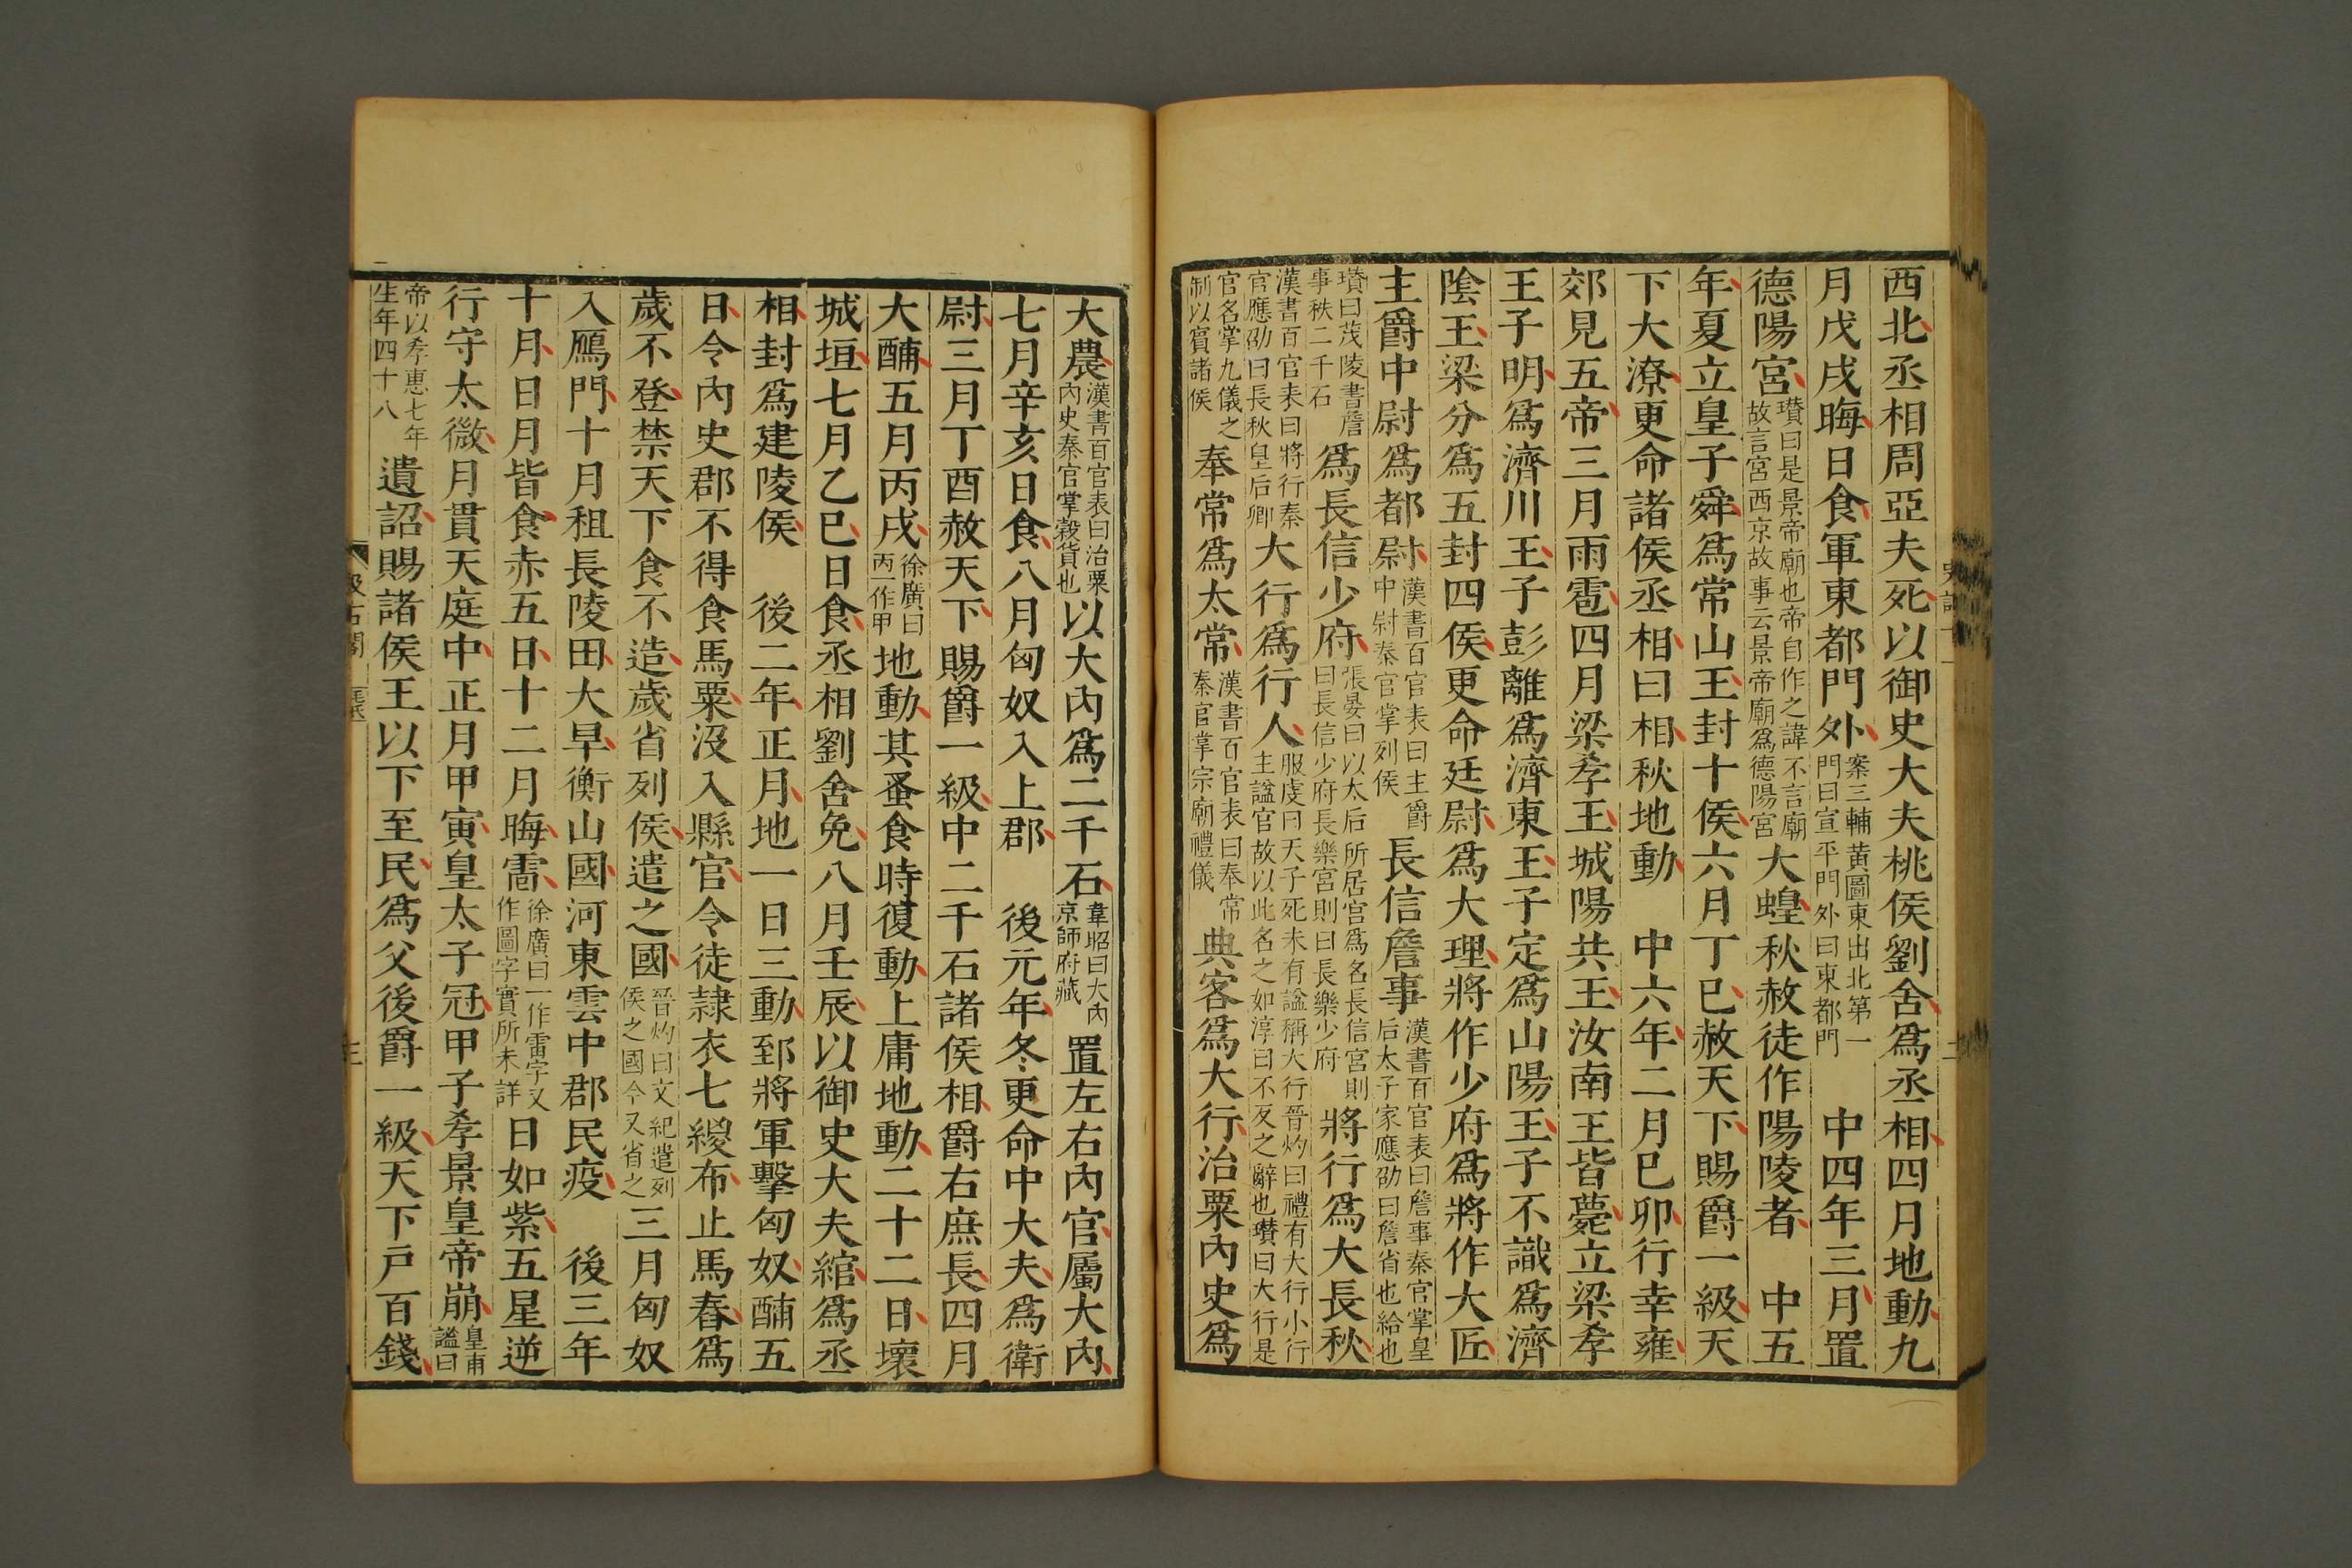 西北丞相周亞夫死以御史大夫桃侯劉舍為丞相四月地動九
月戊戌晦日食軍東都門外案三輔黃圖東出北第一門曰宣平門外曰東都門 中四年三月置
德陽宮瓚曰是景帝廟也帝自作之諱不言廟故言宮西京故事云景帝廟為德陽宮大蝗秋赦徒作陽陵者 中五
年夏立皇子舜為常山王封十侯六月丁巳赦天下賜爵一級天
下大潦更命諸侯丞相曰相秋地動 中六年二月己卯行幸雍
郊見五帝三月雨雹四月梁孝王城陽共王汝南王皆薨立梁孝
王子明為濟川王子彭離為濟東王子定為山陽王子不識為濟
陰王梁分為五封四侯更命廷尉為大理將作少府為將作大匠
主爵中尉為都尉漢書百官表曰主爵中尉秦官掌列侯長信詹事漢書百官表曰詹事秦官掌皇后太子家應劭曰詹省也給也
瓚曰茂陵書詹事秩二千石為長信少府張晏曰以太后所居宮為名長信宮則曰長信少府長樂宮則曰長樂少府將行為大長秋
漢書百官表曰將行秦官應劭曰長秋皇后卿大行為行人服虔曰天子死未有諡稱大行晉灼曰禮有大行小行主諡官故以此名之如淳曰不反之辭也瓚曰大行是
官名掌九儀之制以賓諸侯奉常為太常漢書百官表曰奉常秦官掌宗廟禮儀典客為大行治粟內史為
大農漢書百官表曰治粟內史秦官掌穀貨也以大內為二千石韋昭曰大內京師府藏置左右內官屬大內
七月辛亥日食八月匈奴入上郡 後元年冬更命中大夫為衛
尉三月丁酉赦天下賜爵一級中二千石諸侯相爵右庶長四月
大酺五月丙戌徐廣曰丙一作甲地動其蚤食時復動上庸地動二十二日壞
城垣七月乙巳日食丞相劉舍免八月壬辰以御史大夫綰為丞
相封為建陵侯 後二年正月地一日三動郅將軍擊匈奴酺五
日令內史郡不得食馬粟沒入縣官令徒隸衣七緵布止馬舂為
歲不登禁天下食不造歲省列侯遣之國晉灼曰文紀遣列侯之國今又省之三月匈奴
入鴈門十月租長陵田大旱衡山國河東雲中郡民疫 後三年
十月日月皆食赤五日十二月晦雷徐廣曰一作雷字又作圖字實所未詳日如紫五星逆
行守太微月貫天庭中正月甲寅皇太子冠甲子孝景皇帝崩皇甫謐曰
帝以孝惠七年生年四十八遺詔賜諸侯王以下至民為父後爵一級天下戶百錢